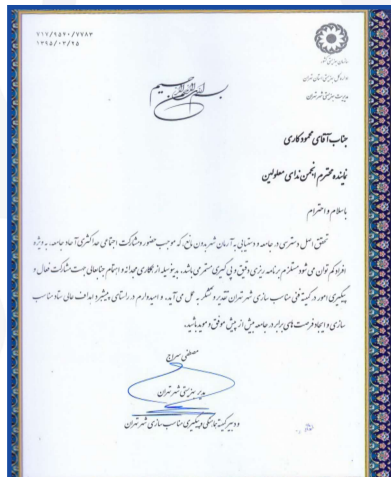 ۷۱۷/۹۵۲۰/۷۷۸۳
۱۳۹۵/۰۳/۲۵
سازمان بهزیستی کشور
اداره کل بهزیستی استان تهران
مدیریت بهزیستی شهر تهران
بسم الله الرحمن الرحیم
جناب آقای محمود کاری
نماینده محترم انجمن ندای معلولین
باسلام و احترام
تحقق اصل دسترسی در جامعه و دستیابی به آرمان شهر بدون مانع، که موجب حضور و مشارکت اجتماعی حداکثری آحاد جامعه، به ویژه
افراد کم توان می شود مستلزم برنامه ریزی دقیق و پی گیری مستمر می باشد، بدینوسیله از همکاری مجدانه و اهتمام جنابعالی جهت مشارکت فعال و
پیگیری امور در کمیته فنی مناسب سازی شهر تهران تقدیر و تشکر به عمل می آید، و امیدوارم در راستای پیشبرد اهداف عالی ستاد مناسب
سازی و ایجاد فرصت های برابر در جامعه بیش از پیش موفق و موید باشید.
مصطفی سراج
مدیر بهزیستی شهر تهران
و دبیر کمیته هماهنگی و پیگیری مناسب سازی شهر تهران